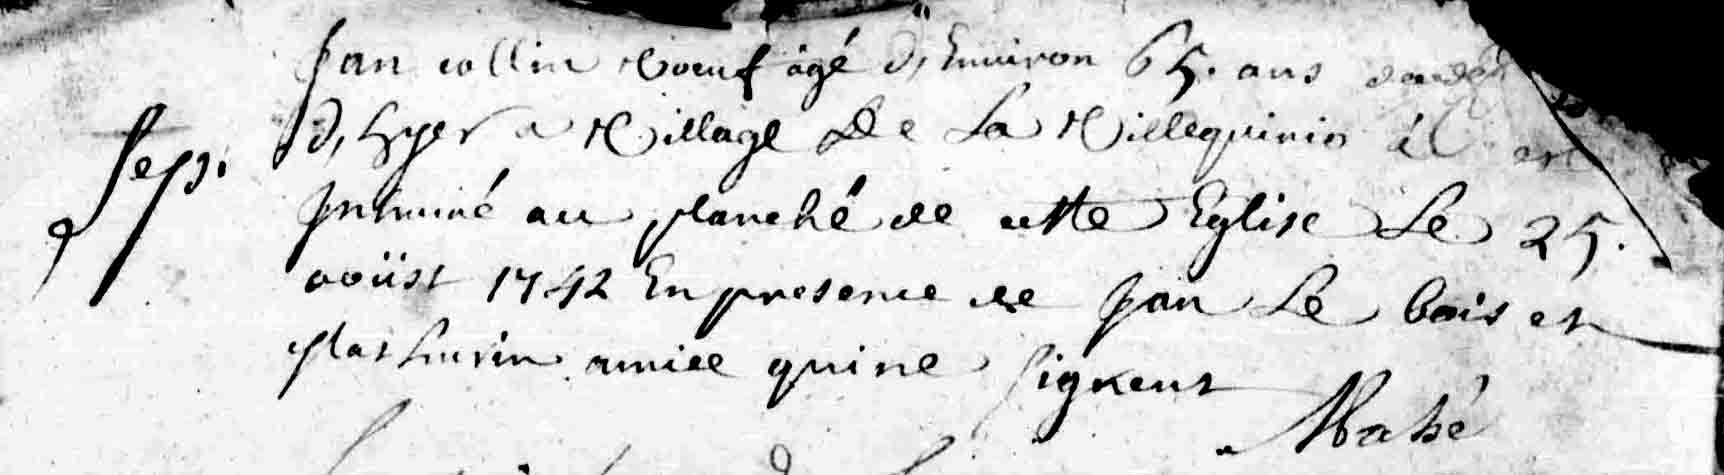 Jan collin voeuf àgé d'Environ 65. ans
d'hyer a village de La villéquinio il est
jnhumé au planché de cette Eglise Le 25.
sep.
aoüst 1742 En presence de Jan Le bois et
Mathurin amice qui ne signent
Mahé